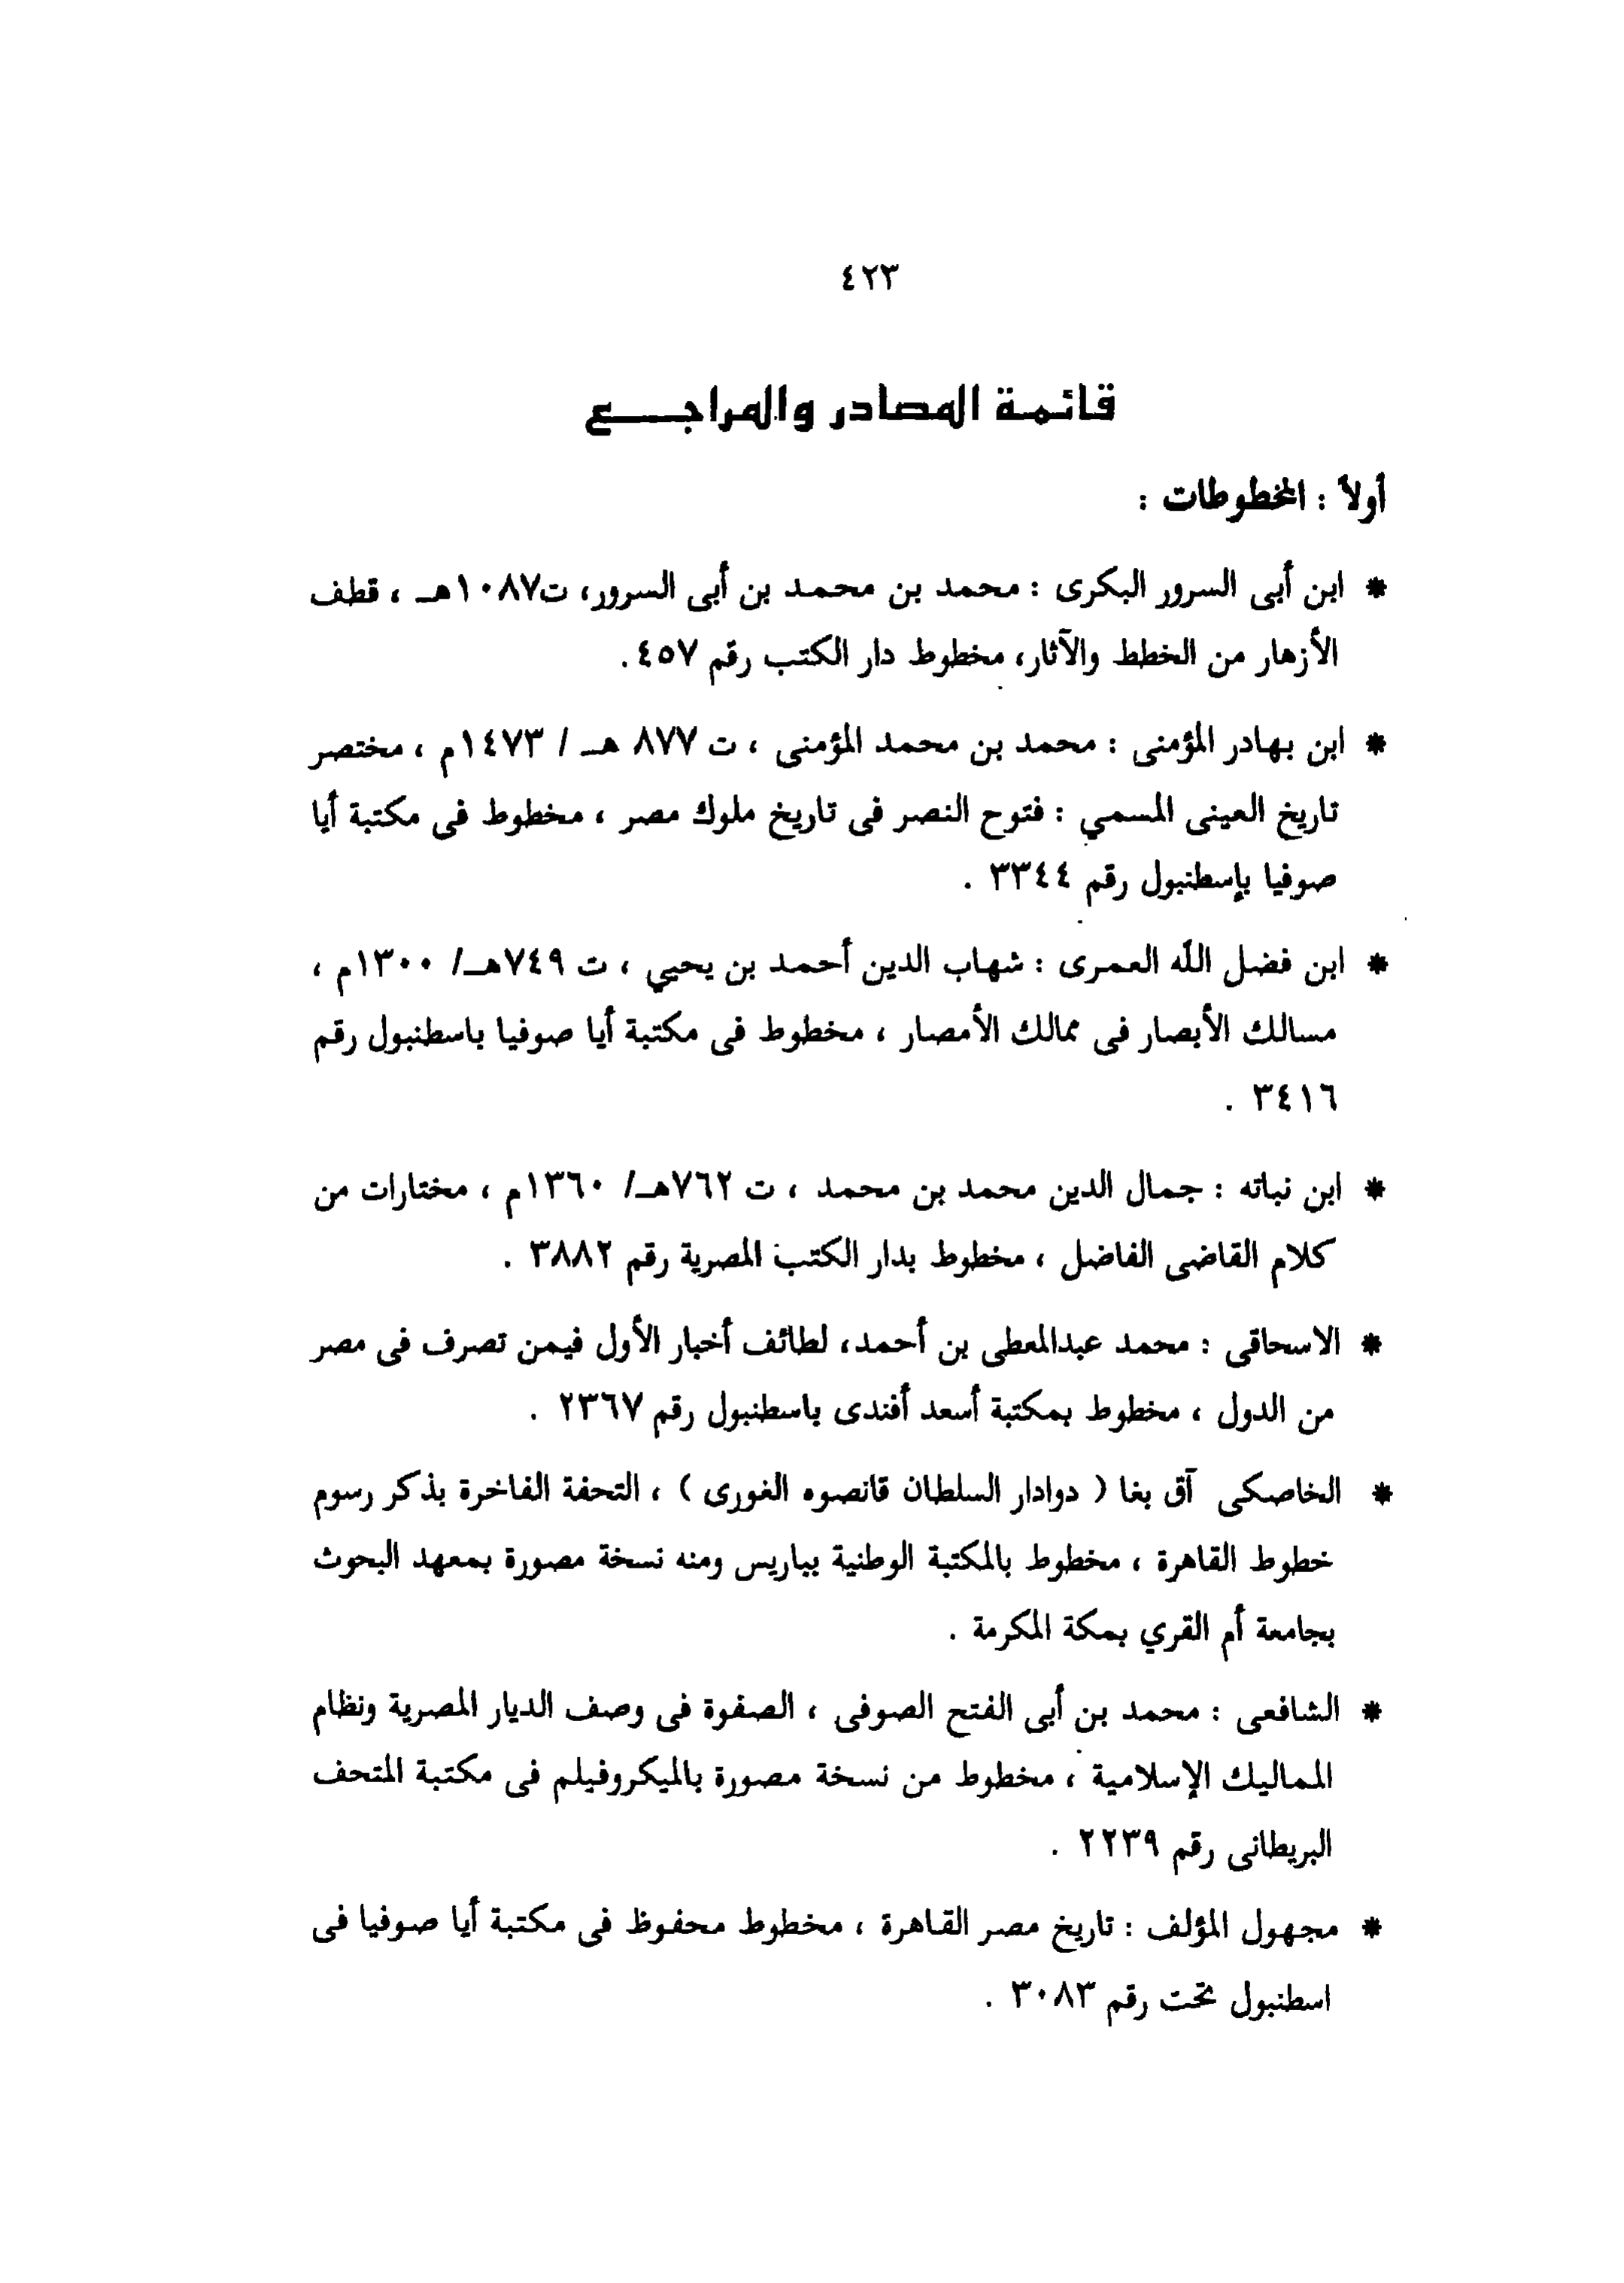 ٤٢٣
قائمة المصادر والمراجع
أولاً : المخطوطات :
* ابن أبى السرور البكرى : محمد بن محمد بن أبى السرور، ت١٠٨٧هـ ، قطف
الأزهار من الخطط والآثار، مخطوط دار الكتب رقم ٤٥٧ .
* ابن بهادر المؤمنى : محمد بن محمد المؤمنى ، ت ٨٧٧ هـ / ١٤٧٣م ، مختصر
تاريخ العينى المسمي : فتوح النصر فى تاريخ ملوك مصر ، مخطوط فى مكتبة أيا
صوفيا بإسطنبول رقم ٣٣٤٤ .
* ابن فضل الله العمرى : شهاب الدين أحمد بن يحيي ، ت ٧٤٩هـ/ ١٣٠٠م ،
مسالك الأبصار فى ممالك الأمصار ، مخطوط فى مكتبة أيا صوفيا باسطنبول رقم
٣٤١٦ .
* ابن نباته : جمال الدين محمد بن محمد ، ت ٧٦٢هـ/ ١٣٦٠م ، مختارات من
كلام القاضى الفاضل ، مخطوط بدار الكتب المصرية رقم ٣٨٨٢ .
* الاسحاقى : محمد عبدالمعطى بن أحمد، لطائف أخبار الأول فيمن تصرف فى مصر
من الدول ، مخطوط بمكتبة أسعد أفندى باسطنبول رقم ٢٣٦٧ .
* الخاصكى آق بغا ( دوادار السلطان قانصوه الغورى ) ، التحفة الفاخرة بذكر رسوم
خطوط القاهرة ، مخطوط بالمكتبة الوطنية بباريس ومنه نسخة مصورة بمعهد البحوث
بجامعة أم القري بمكة المكرمة .
* الشافعى : محمد بن أبى الفتح الصوفى ، الصفوة فى وصف الديار المصرية ونظام
المماليك الإسلامية ، مخطوط من نسخة مصورة بالميكروفيلم فى مكتبة المتحف
البريطانى رقم ٢٢٣٩ .
* مجهول المؤلف : تاريخ مصر القاهرة ، مخطوط محفوظ فى مكتبة أيا صوفيا فى
اسطنبول تحت رقم ٣٠٨٣ .